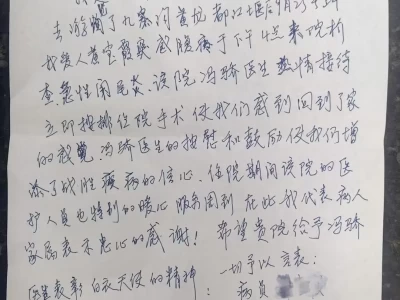 去游
了九寨间黄龙都江堰后9月29日
我爱人黄宝霞突感腹疼于下午4点来院检
查急性阑尾炎、该院冯骄医生热情接待
立即按排住院手术使我们感到回到了家
的感觉、冯骄医生的按慰和鼓励使我们增
添了战胜疾病的信心、住院期间该院的医
护人员也特别的暖心服务周到在此我代表病人
家属表示忠心的感谢! 希望贵院给予冯骄
医生表彰白衣天使的精神: 一切予以言表:
病员